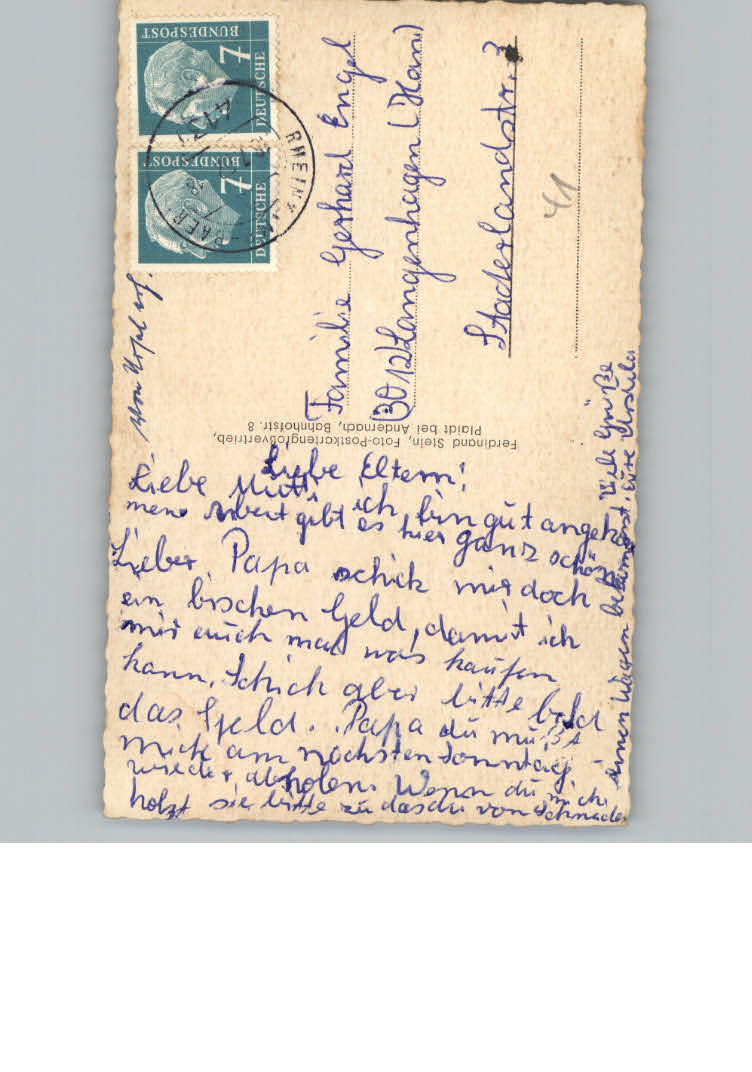 DEUTSCHE
BUNDESPOST
7
DEUTSCHE
BUNDESPOST
7
RHEIN
Familie Gerhard Engel
(3012) Langenhagen (Han)
Staderlandstr. 3
41
Ferdinand Stein, Foto-Postkartengroßvertrieb,
Plaidt bei Andernach, Bahnhofstr. 8
Liebe Eltern!
Liebe Mutti ich bin gut angeko
mene Arbeit gibt es hier ganz schön
Lieber Papa schick mir doch
ein bischen Geld, damit ich
mir auch mal was kaufen
kann. Schick aber bitte bald
das Geld. Papa du mußt
mich am nächsten Sonntag
wieder abholen. Wenn du mich
holzt sie bitte zu das du von
einen Wagen bekommst. Viele Grüße
eure